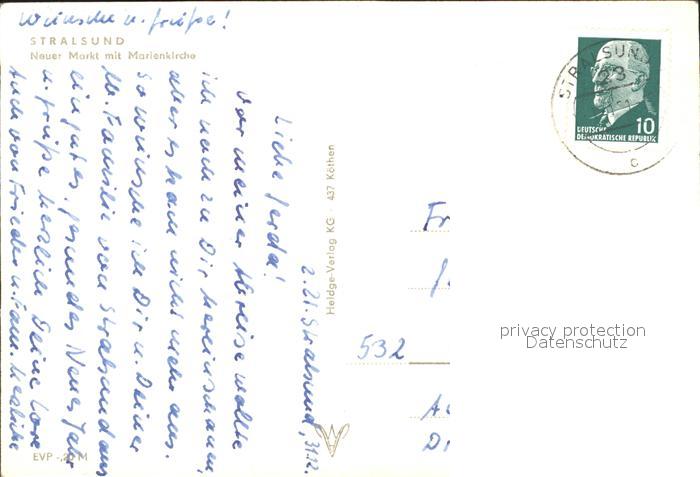 Wünsche u. Grüße!
STRALSUND
Neuer Markt mit Marienkirche
z. Zt. Stralsund, 31.12.
Liebe Gerda!
Vor meiner Abreise wollte
ich noch zu Dir hereinschauen,
aber es kam nicht mehr aus.
So wünsche ich Dir u. Deiner
lb. Familie von Stralsund aus
ein gutes, gesundes Neues Jahr
u. grüße herzlich Deine Lore
Auch von Frieder u. Fam. herzliche
Heldge-Verlag KG · 437 Köthen
EVP -,20 M
STRALSUND
23
c
DEUTSCHE
DEMOKRATISCHE REPUBLIK
10
Fr
532
A
D
privacy protection
Datenschutz